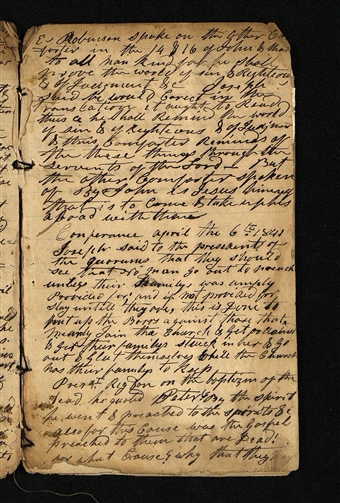 E Robinson spoke on the other Com
forter in the 14 & 16 of John & that
to all man kind for he shall
reprove the world of sin & Righteous
& of Judgement &c Joseph
said he would correct in the
translation it ought to Read
thus & he shall Remind the world
of sin & of Righteous & of Judgm
& this Comforter Reminds of
the these things through the
servants of the Lord But
the other Comforter spoken
of By John is Jesus himself
that is to Come & take up his
abroad with them
Conferance april the 6th 1841
Joseph said to the presidents of
the quorums that they should
see that no man go out to preach
unless their familys was amply
Provided for, and if not provided for
stay untill they are, this is done to
put up the Bars against those that
Join the Church & Get ordained
& Get their familys stuck in her & Go
out & Glut themselves while the Church
has their familys to Keep
Prest Rigdon on the baptism of the
Dead he quoted Peter By the spirit
he went & preached to the spirits &c
also for this Cause was the Gospel
preached to them that are Dead
for what Cause, & why that they